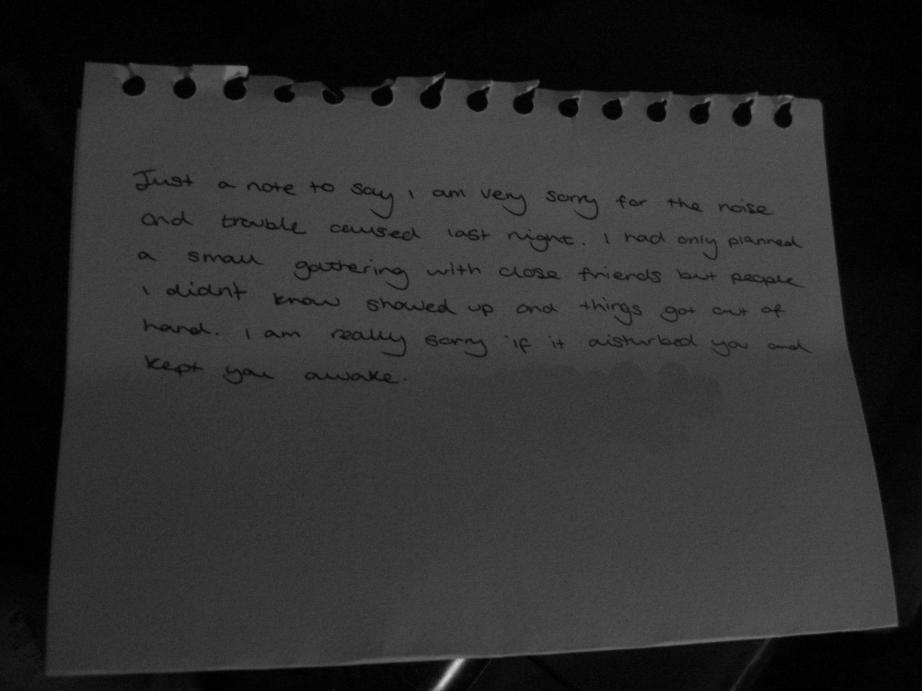 Just a note to say i am very sorry for the noise
and trouble caused last night. I had only planned
a small gathering with close friends but people
i didn't know showed up and things got out of
hand. I am really sorry if it disturbed you and
kept you awake.